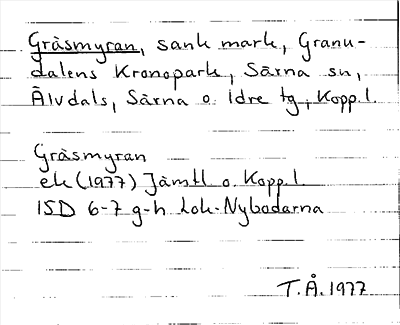 Gråsmyran, sank mark, Granu-
dalens Kronopark, Särna sn,
Älvdals, Särna o. Idre tg, Kopp.l.
Gråsmyran
ek (1977) Jämtl o. Kopp.l.
15D 6-7 g-h Lok-Nybodarna
T.Å.1977